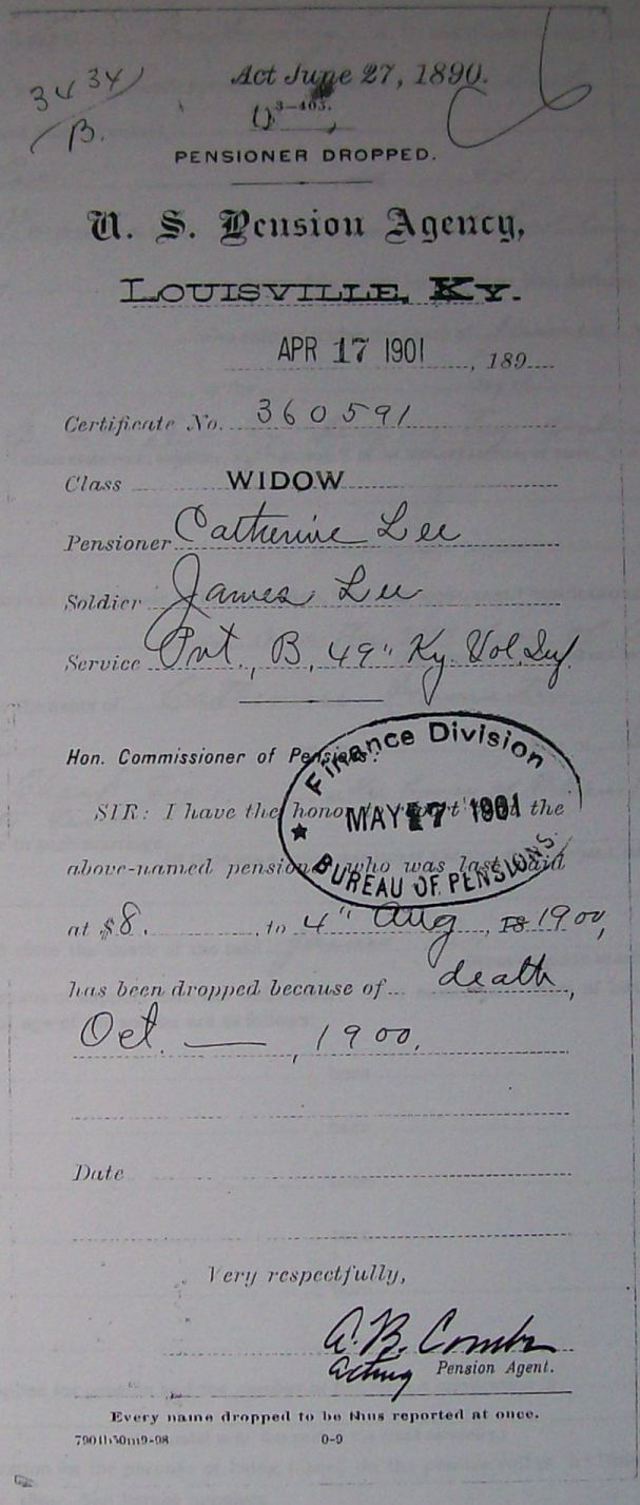 3434
B.
Act June 27, 1890.
3-403.
PENSIONER DROPPED.
U. S. Pension Agency,
LOUISVILLE, KY.
APR 17 1901, 189
Certificate No. 360591
Class WIDOW
Pensioner Catherine Lee
Soldier James Lee
Service Pvt., B, 49" Ky. Vol. Inf.
Hon. Commissioner of Pensions.
Finance Division
SIR: I have the honor to report that the
MAY 17 1901
above-named pensioner who was last paid
BUREAU OF PENSIONS.
at $8., to 4" Aug, 18 1900,
has been dropped because of death,
Oct. — , 1900.
Date
Very respectfully,
A. B. Combs
acting Pension Agent.
Every name dropped to be thus reported at once.
7901b50m9-98 0-9